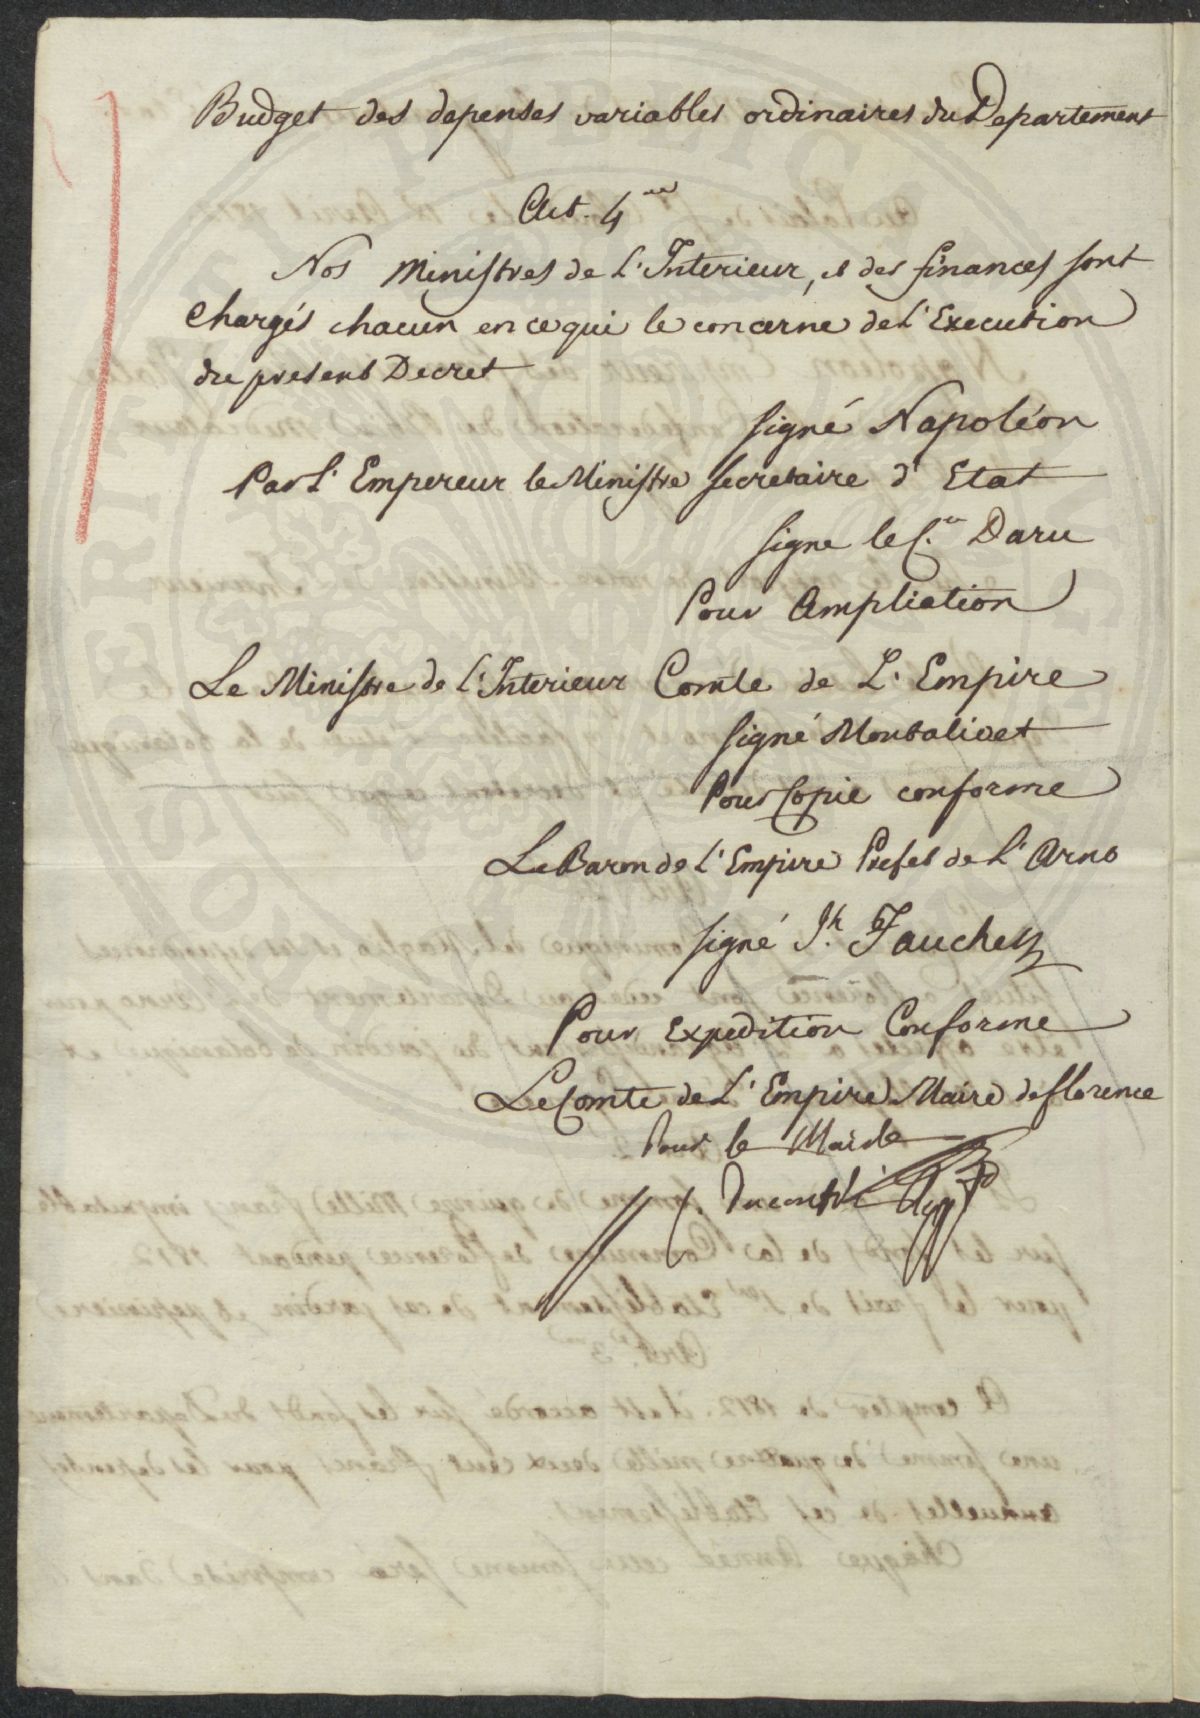 Budget des depenses variables ordinaires du Departement
Art. 4me
Nos Ministres de L'Interieur, et des finances sont
Chargés chacun en ce qui le concerne de L'Execution
du present Decret
signé Napoléon
Par L'Empereur le Ministre Secretaire d'Etat
signe le Cte Daru
Pour Ampliation
Le Ministre de L'Interieur Comte de L'Empire
signé Montalivet
Pour Copie conforme
Le Baron de L'Empire Prefet de L'Arno
signé Jh. Fauchet
Pour Expedition Conforme
Le Comte de L'Empire Maire de florence
Pour le Maire